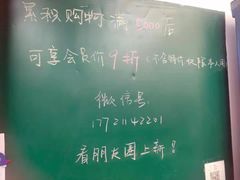 累积购物满5000后
可享会员价9折(不含特价
微信号
17721142201
看朋友圈上新!